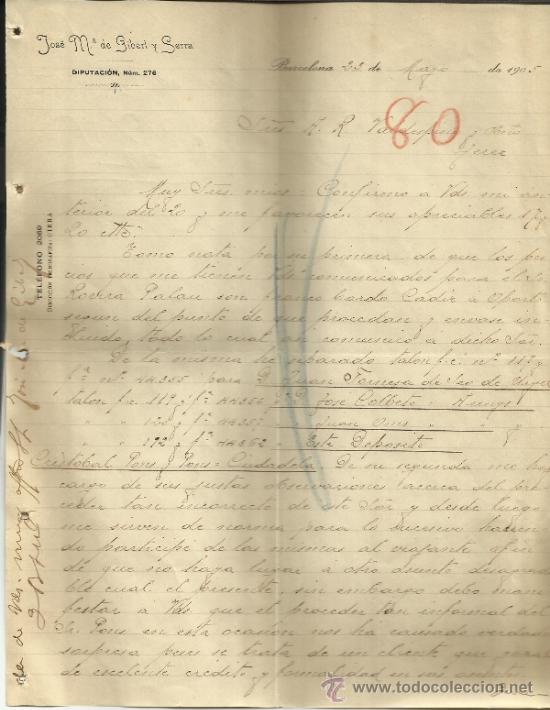 José Mª de Gibert y Serra
DIPUTACIÓN, Núm. 276
Barcelona 22 de Mayo de 1905
80
Sres A. R. Valdespino y Hno
Jerez
Muy Sres. mios: Confirmo a Vds mi an-
terior del 20 y me favorecen sus apreciables 17 y
20 cte.
Tomo nota por su primera de que los pre-
cios que me tienen Vds comunicados para el Sr
Rovira Palau son franco bordo Cádiz
segun del punto de que procedan y envase in-
cluido, todo lo cual comunico a dicho Sor.
De la misma he separado talon f.c. nº 117 y
fª nº 44355 para D. Juan Fornesa de
talon f.c. 119 y fª 44356 José Colbeto
" " 120 y fª 44357 Juan Oms " "
" " 122 y fª 44362 " Este Deposito
Cristobal Pons y Pons - Ciudadela De su segunda me hago
cargo de sus justas observaciones acerca del pro-
ceder tan incorrecto de este Sor y desde luego
me sirven de norma para lo sucesivo hacien-
do participe de las mismas al viajante afin
de que no haya lugar a otro asunto desagrada-
ble cual el presente, sin embargo debo mani-
festar a Vds que el proceder tan informal del
Sr. Pons en esta ocasión nos ha causado verdadera
sorpresa pues se trata de un cliente que goza
de excelente crédito y formalidad en sus
TELÉFONO 2069
de Vds. muy atto
todocoleccion
www.todocoleccion.net